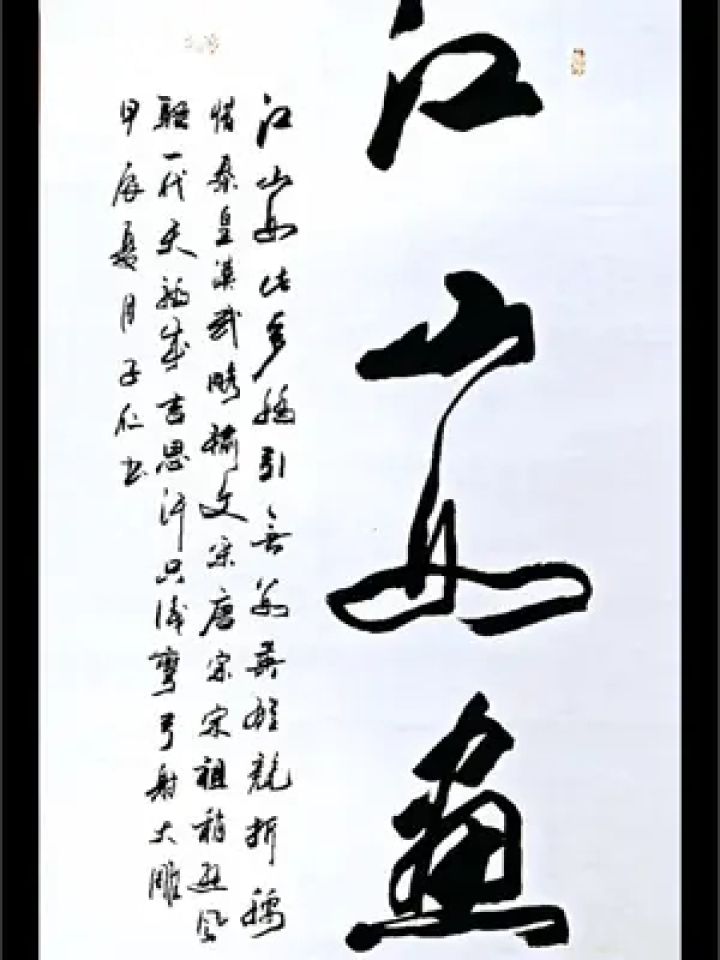 江山如畫
江山如此多娇引无数英雄競折腰
惜秦皇漢武略输文采唐宗宋祖稍逊风
骚一代天骄成吉思汗只识弯弓射大雕
甲辰夏月子仁书